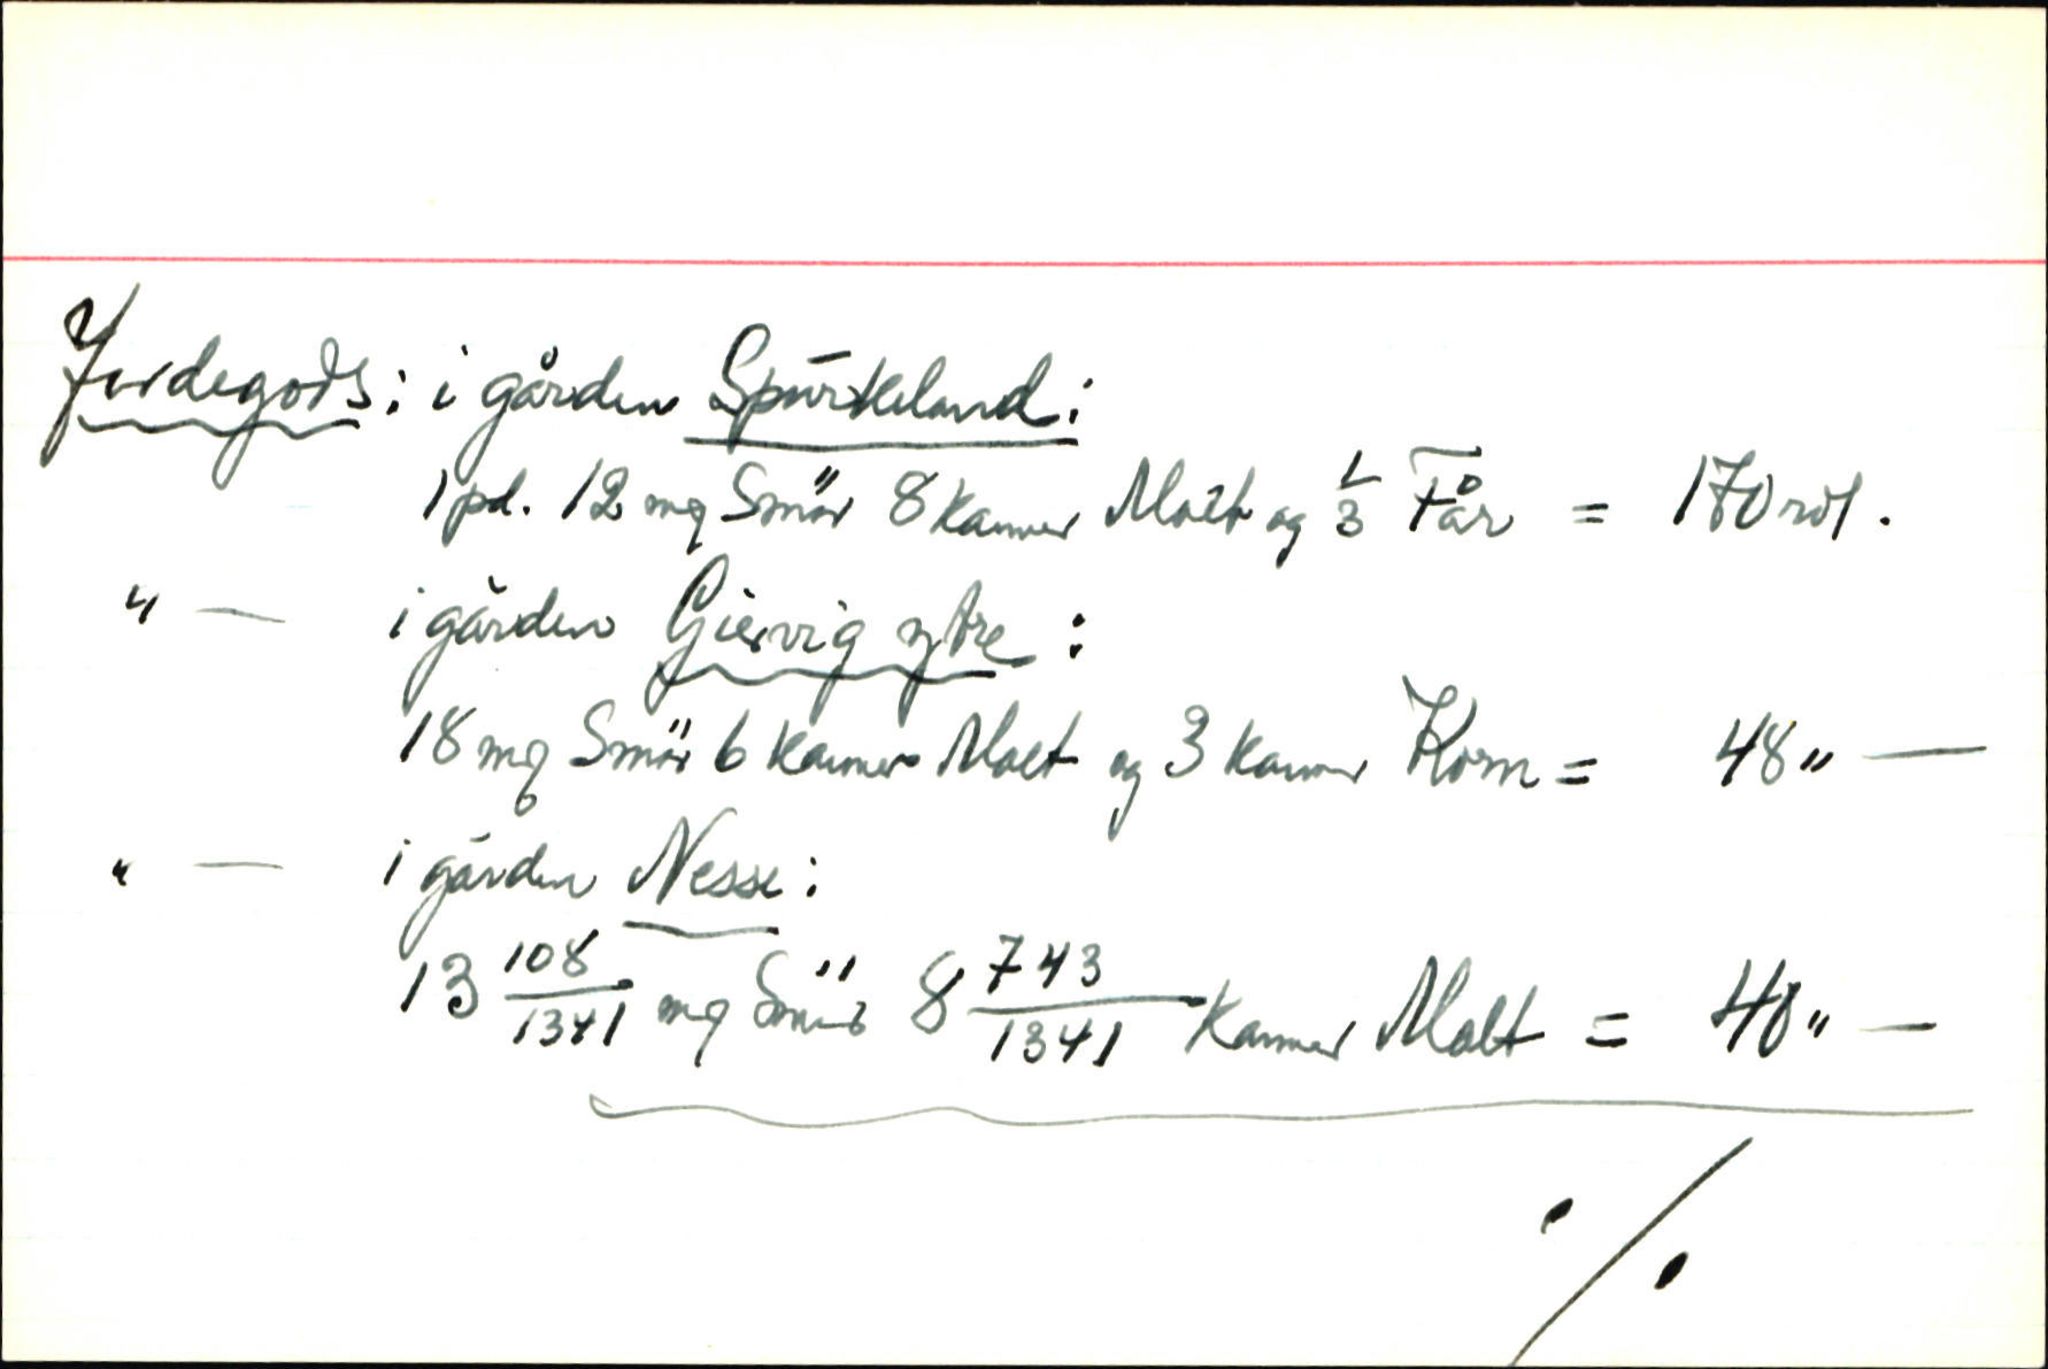 Jordegods: i gården Spurkeland:
1 pd. 12 mq Smör 8 Kanner Malt og 1/3 Får = 170 rdl.
" — i gården Giervig ytre:
18 mq Smör 6 Kanner Malt og 3 Kanner Korn = 48 " —
" — i gården Nesse:
13 108/1341 mq Smör 8 743/1341 Kanner Malt = 40 " —
./.